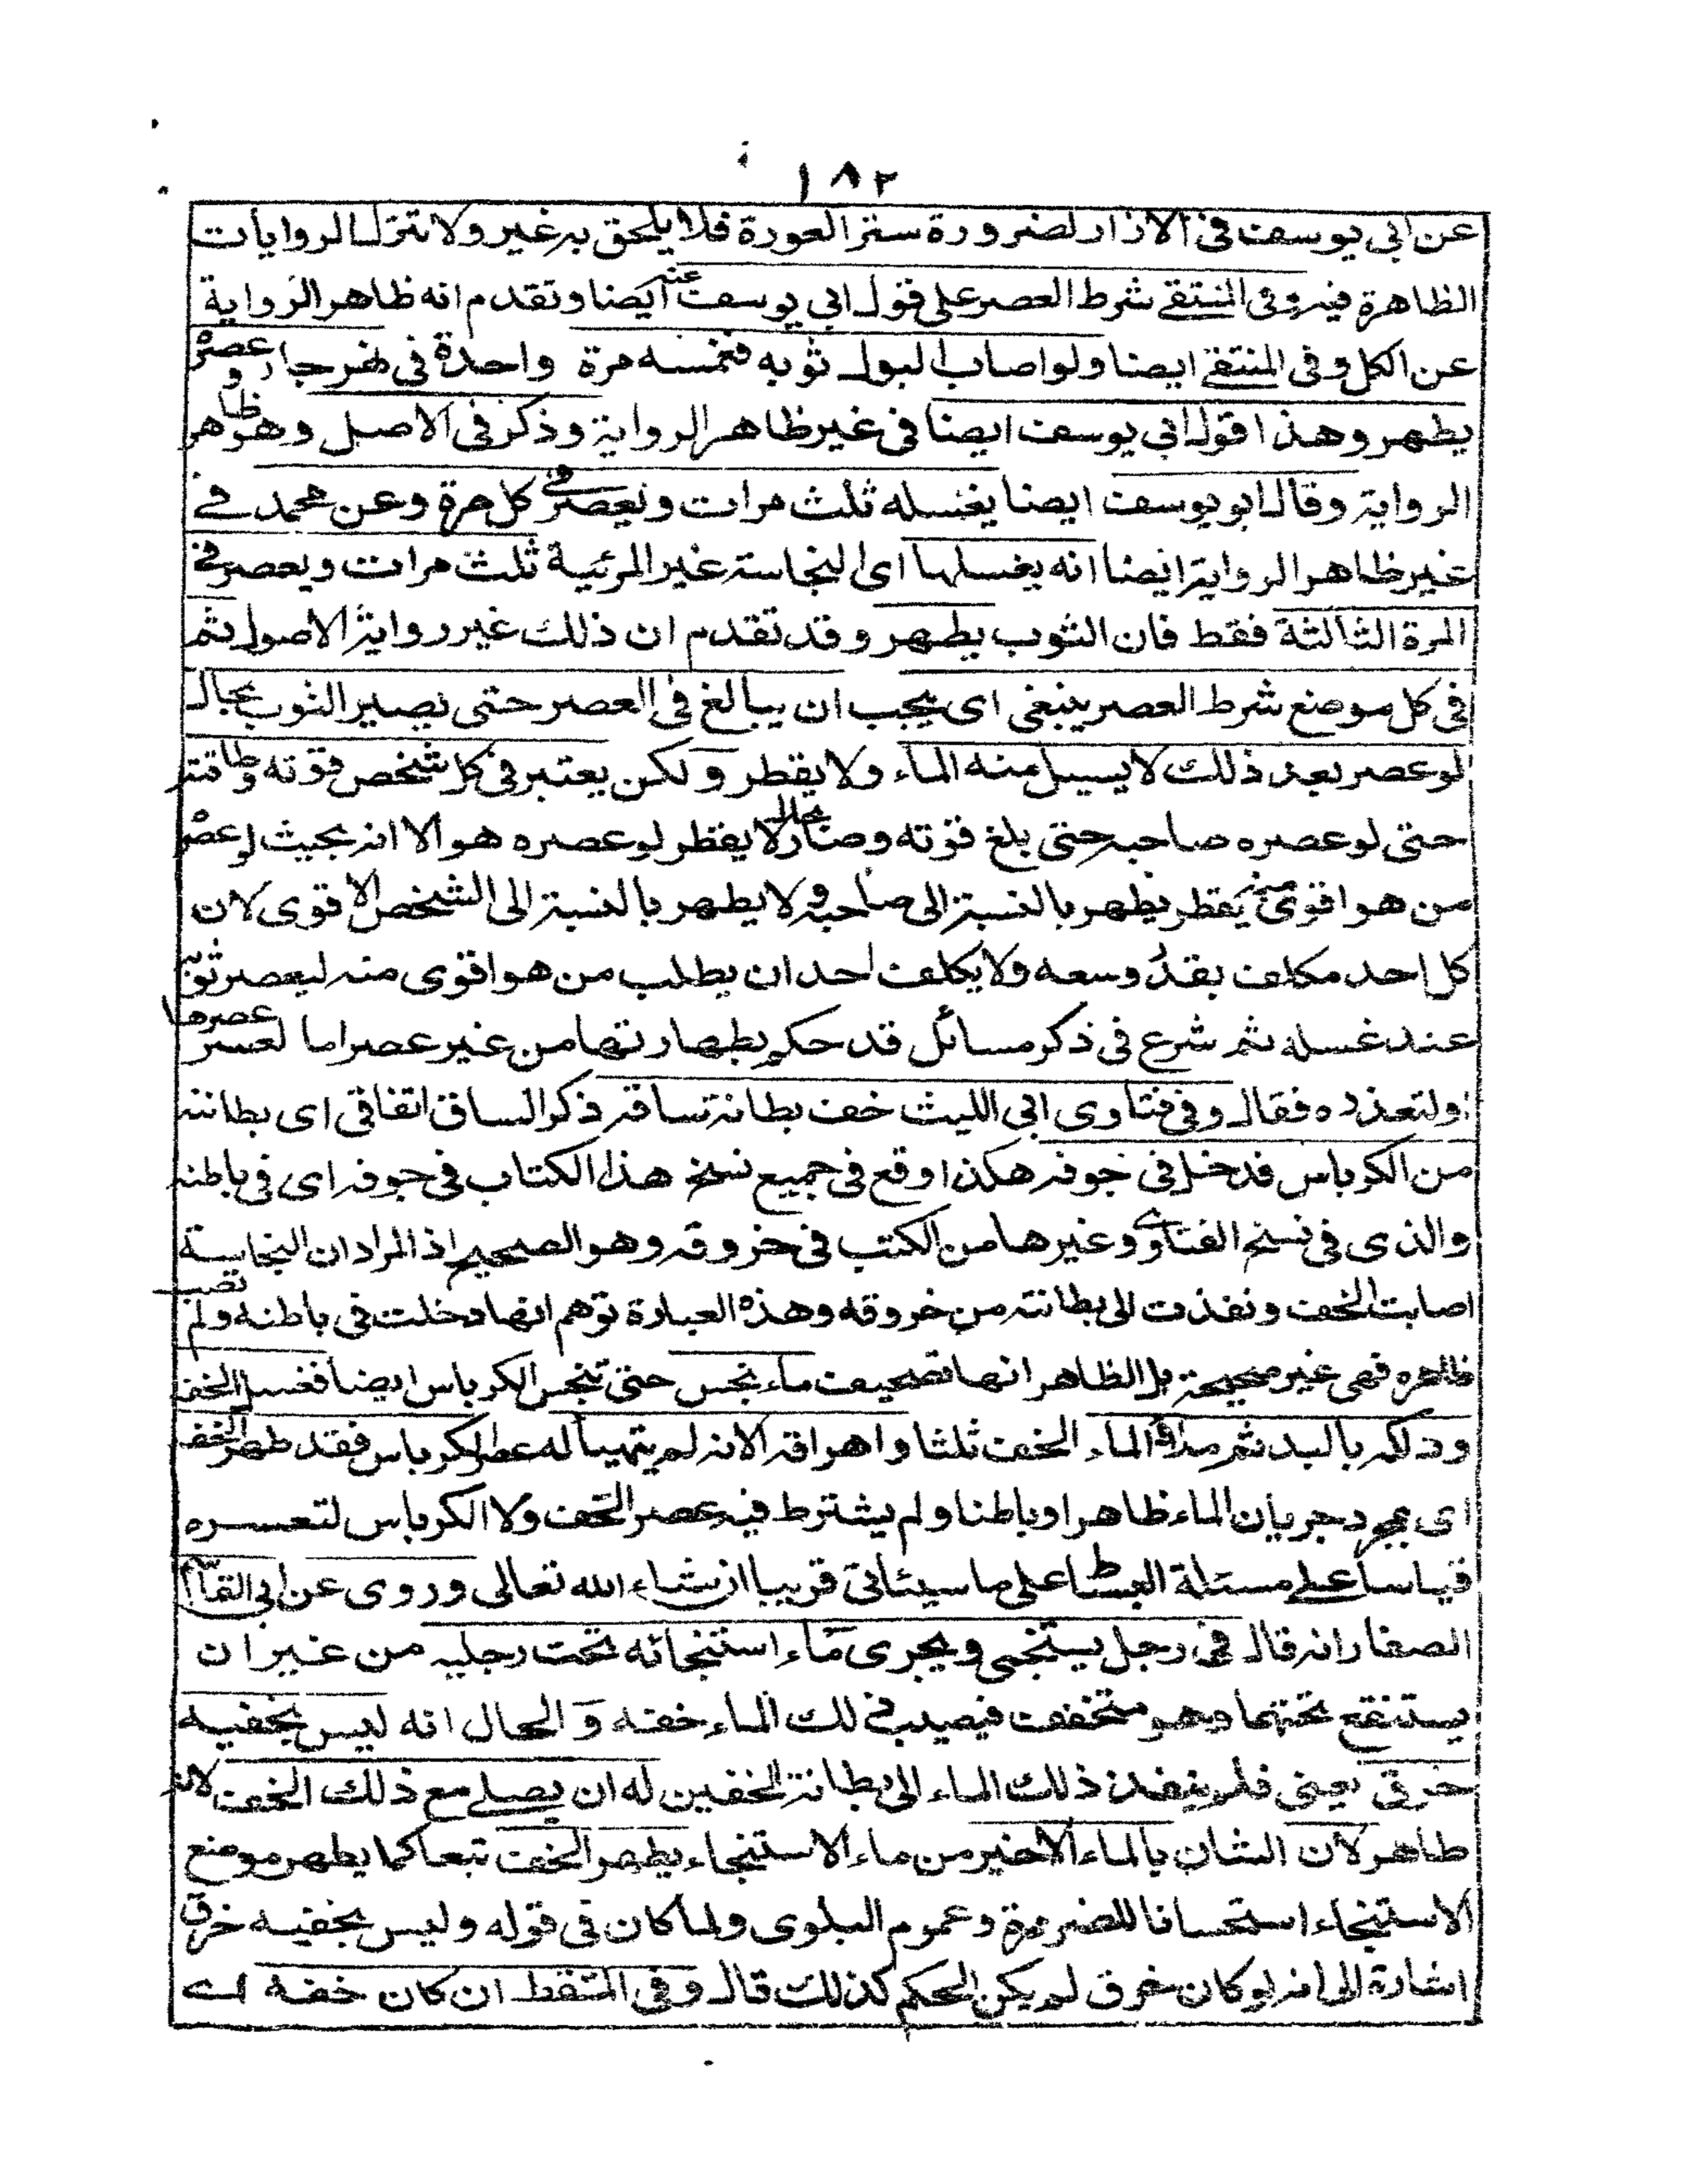 ١٨٢
عن ابى يوسف فى الازار لضرورة ستر العورة فلا يلحق به غيره ولا تترك الروايات
الظاهرة فيه وفى المنتقى شرط العصر على قول ابى يوسف عنه ايضا وتقدم انه ظاهر الرواية
عن الكل وفى المنتقى ايضا ولو اصاب البول ثوبه فغمسه مرة واحدة فى نهر جار وعصره
يطهر وهذا قول ابى يوسف ايضا فى غير ظاهر الرواية وذكر فى الاصل وهو ظاهر
الرواية وقال ابو يوسف ايضا يغسله ثلث مرات ويعصر فى كل مرة وعن محمد فى
غير ظاهر الرواية ايضا انه يغسلها اى النجاسة غير المرئية ثلث مرات ويعصر فى
المرة الثالثة فقط فان الثوب يطهر وقد تقدم ان ذلك غير رواية الاصول ثم
فى كل موضع شرط العصر ينبغى اى يجب ان يبالغ فى العصر حتى يصير الثوب بحال
لو عصر بعد ذلك لا يسيل منه الماء ولا يقطر ولكن يعتبر فى كل شخص قوته وطاقته
حتى لو عصره صاحبه حتى بلغ قوته وصار بحال لا يقطر لو عصره هو الا انه بحيث لو عصره
من هو اقوى منه يقطر يطهر بالنسبة الى صاحبه ولا يطهر بالنسبة الى الشخص الاقوى لان
كل احد مكلف بقدر وسعه ولا يكلف احد ان يطلب من هو اقوى منه ليعصر ثوبه
عند غسله ثم شرع فى ذكر مسائل قد حكم بطهارتها من غير عصر اما لعسر عصرها
او لتعذره فقال وفى فتاوى ابى الليث خف بطانة ساقه ذكر الساق اتفاقى اى بطانته
من الكرباس فدخل فى جوفه هكذا وقع فى جميع نسخ هذا الكتاب فى جوفه اى فى باطنه
والذى فى نسخ الفتاوى وغيرها من الكتب فى خروقه وهو الصحيح اذ المراد ان النجاسة
اصابت الخف ونفذت الى بطانته من خروقه وهذه العبارة توهم انها دخلت فى باطنه ولم تصب
ظاهره فهى غير صحيحة بل الظاهر انها تصحيف ماء نجس حتى تنجس الكرباس ايضا فغسل الخف
ودلكه باليد ثم ملأ الماء الخف ثلثا واهراقه الا انه لم يتهيأ له عصر الكرباس فقد طهر الخف
اى بمجرد جريان الماء ظاهرا وباطنا ولم يشترط فيه عصر الخف ولا الكرباس لتعسره
قياسا على مسئلة البساط على ما سيئاتى قريبا ان شاء الله تعالى وروى عن ابى القاسم
الصفار انه قال فى رجل يستنجى ويجرى ماء استنجائه تحت رجليه من غير ان
يستنقع تحتهما وهو متخفف فيصيب ذلك الماء خفه و الحال انه ليس بخفيه
خرق يعنى فلم ينفذ ذلك الماء الى بطانة الخفين له ان يصلى مع ذلك الخف لانه
طاهر لان الشان بالماء الاخير من ماء الاستنجاء يطهر الخف تبعا كما يطهر موضع
الاستنجاء استحسانا للضرورة وعموم البلوى ولما كان فى قوله وليس بخفيه خرق
اشارة الى انه لو كان خرق لم يكن الحكم كذلك قال وفى الملتقط ان كان خفه اى